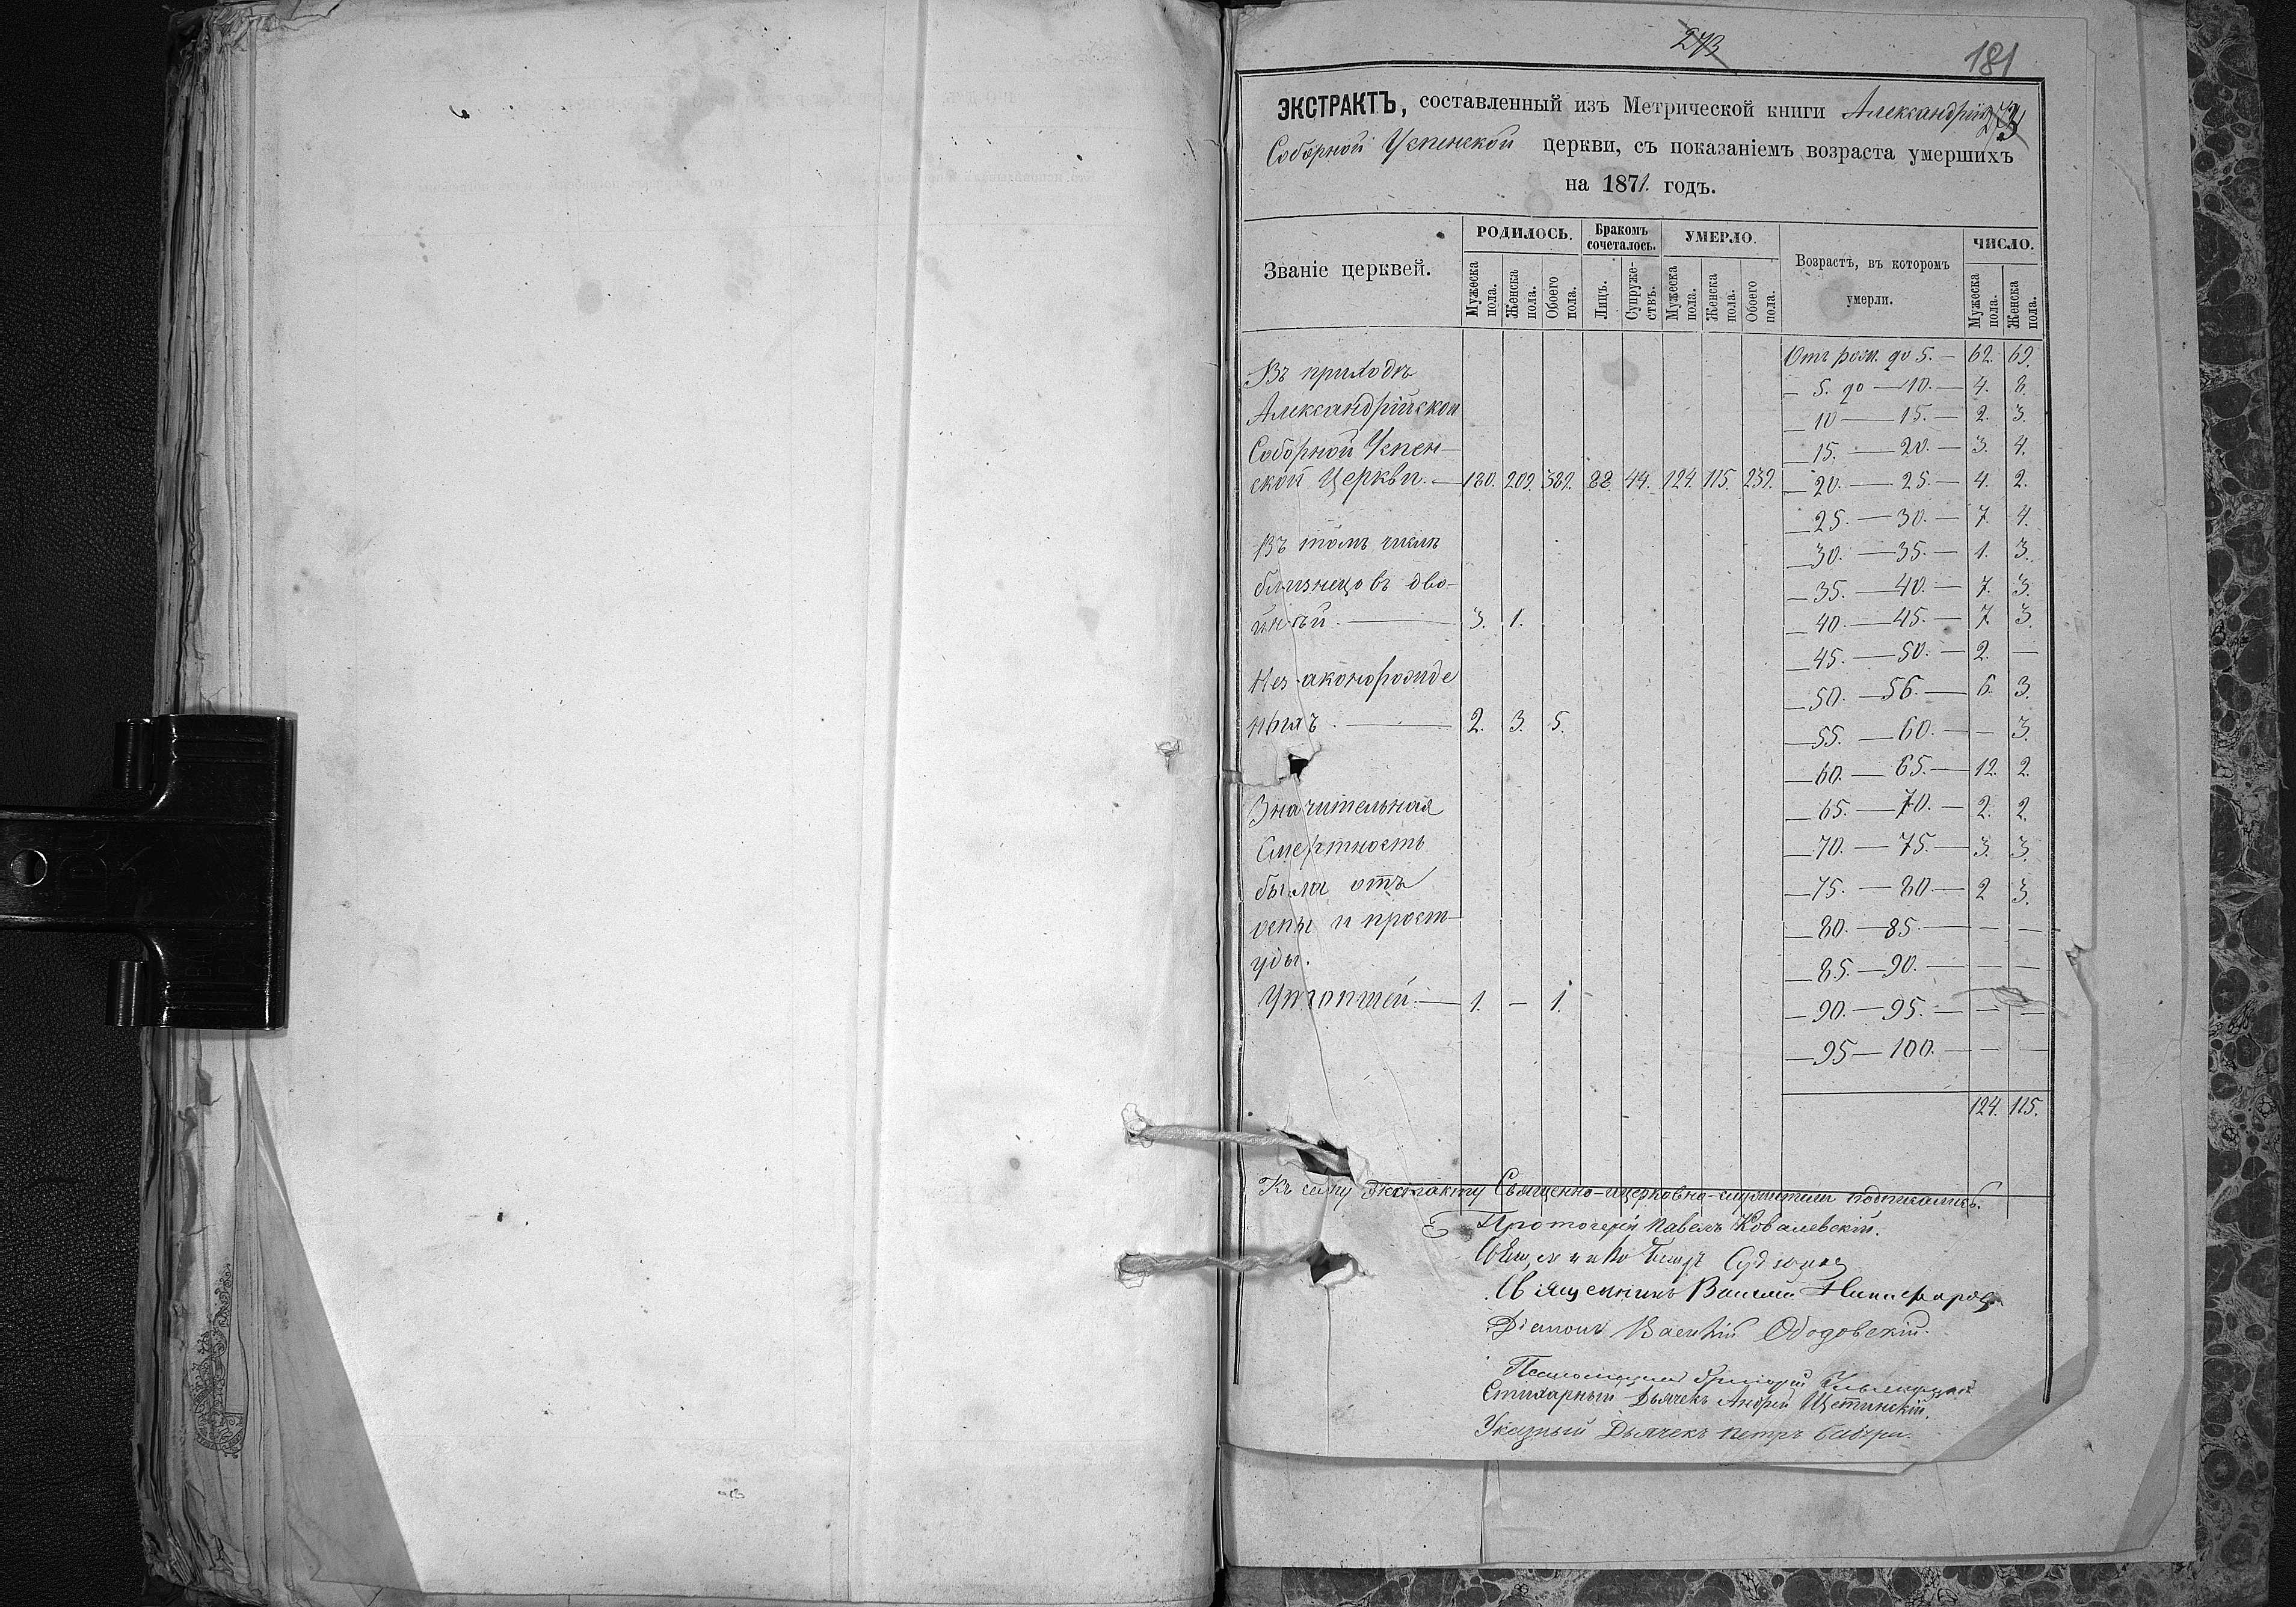 273
181
ЭКСТРАКТЪ, составленный изъ Метрической книги Александрій
273
Соборной Успенской церкви, съ показаніемъ возраста умершихъ
на 1871. годъ.
Званіе церквей.
РОДИЛОСЬ.
Бракомъ сочеталось.
УМЕРЛО.
Возрастъ, въ которомъ
умерли.
ЧИСЛО.
Мужеска пола.
Женска пола.
Обоего пола.
Лицъ.
Супружествъ.
Мужеска пола.
Женска пола.
Обоего пола.
Мужеска пола.
Женска пола.
Въ приходѣ
Александрійской
Соборной Успен-
ской Церкви. — 180. 209. 389. 88 44. 124. 115. 239.
Въ томъ числѣ
близнецовъ дво-
йней. — 3. 1.
Незаконорожде
ныхъ. — 2. 3. 5.
Значительная
смертность
была отъ
оспы и прост-
уды.
Утопшей. — 1. — 1.
Отъ рож. до 5. — 62. 69.
— 5. до — 10. — 4. 8.
— 10 — 15. — 2. 3.
— 15. — 20. — 3. 4.
— 20. — 25. — 4. 2.
— 25. — 30. — 7. 4.
— 30. — 35. — 1. 3.
— 35. — 40. — 7. 3.
— 40. — 45. — 7. 3.
— 45. — 50. — 2. —
— 50. — 56. — 6. 3.
— 55. — 60. — — 3.
— 60. — 65. — 12. 2.
— 65. — 70. — 2. 2.
— 70. — 75. — 3. 3.
— 75. — 80. — 2 3.
— 80. — 85. — — —
— 85. — 90. — — —
— 90. — 95. — — —
— 95 — 100. — — —
124. 115.
Къ сему экстракту Священно-церковно-служители подписались.
Протоіерей Павелъ Ковалевскій.
Священникъ
Священникъ Василій Никифоровъ
Діаконъ Василій Ободовскій.
Григорій
Стихарный Дьячекъ Андрей Щетинскій.
Указный Дьячекъ Петръ